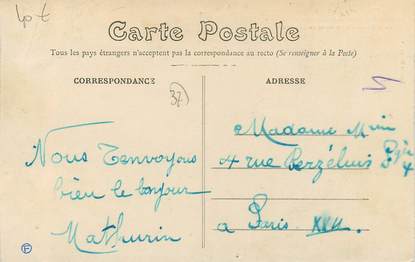 Carte Postale
Tous les pays étrangers n'acceptent pas la correspondance au recto (Se renseigner à la Poste)
CORRESPONDANCE
ADRESSE
37
Nous Tenvoyons
bien le bonjour
Mathurin
Madame
4 rue Berzélius
a Paris XVII.